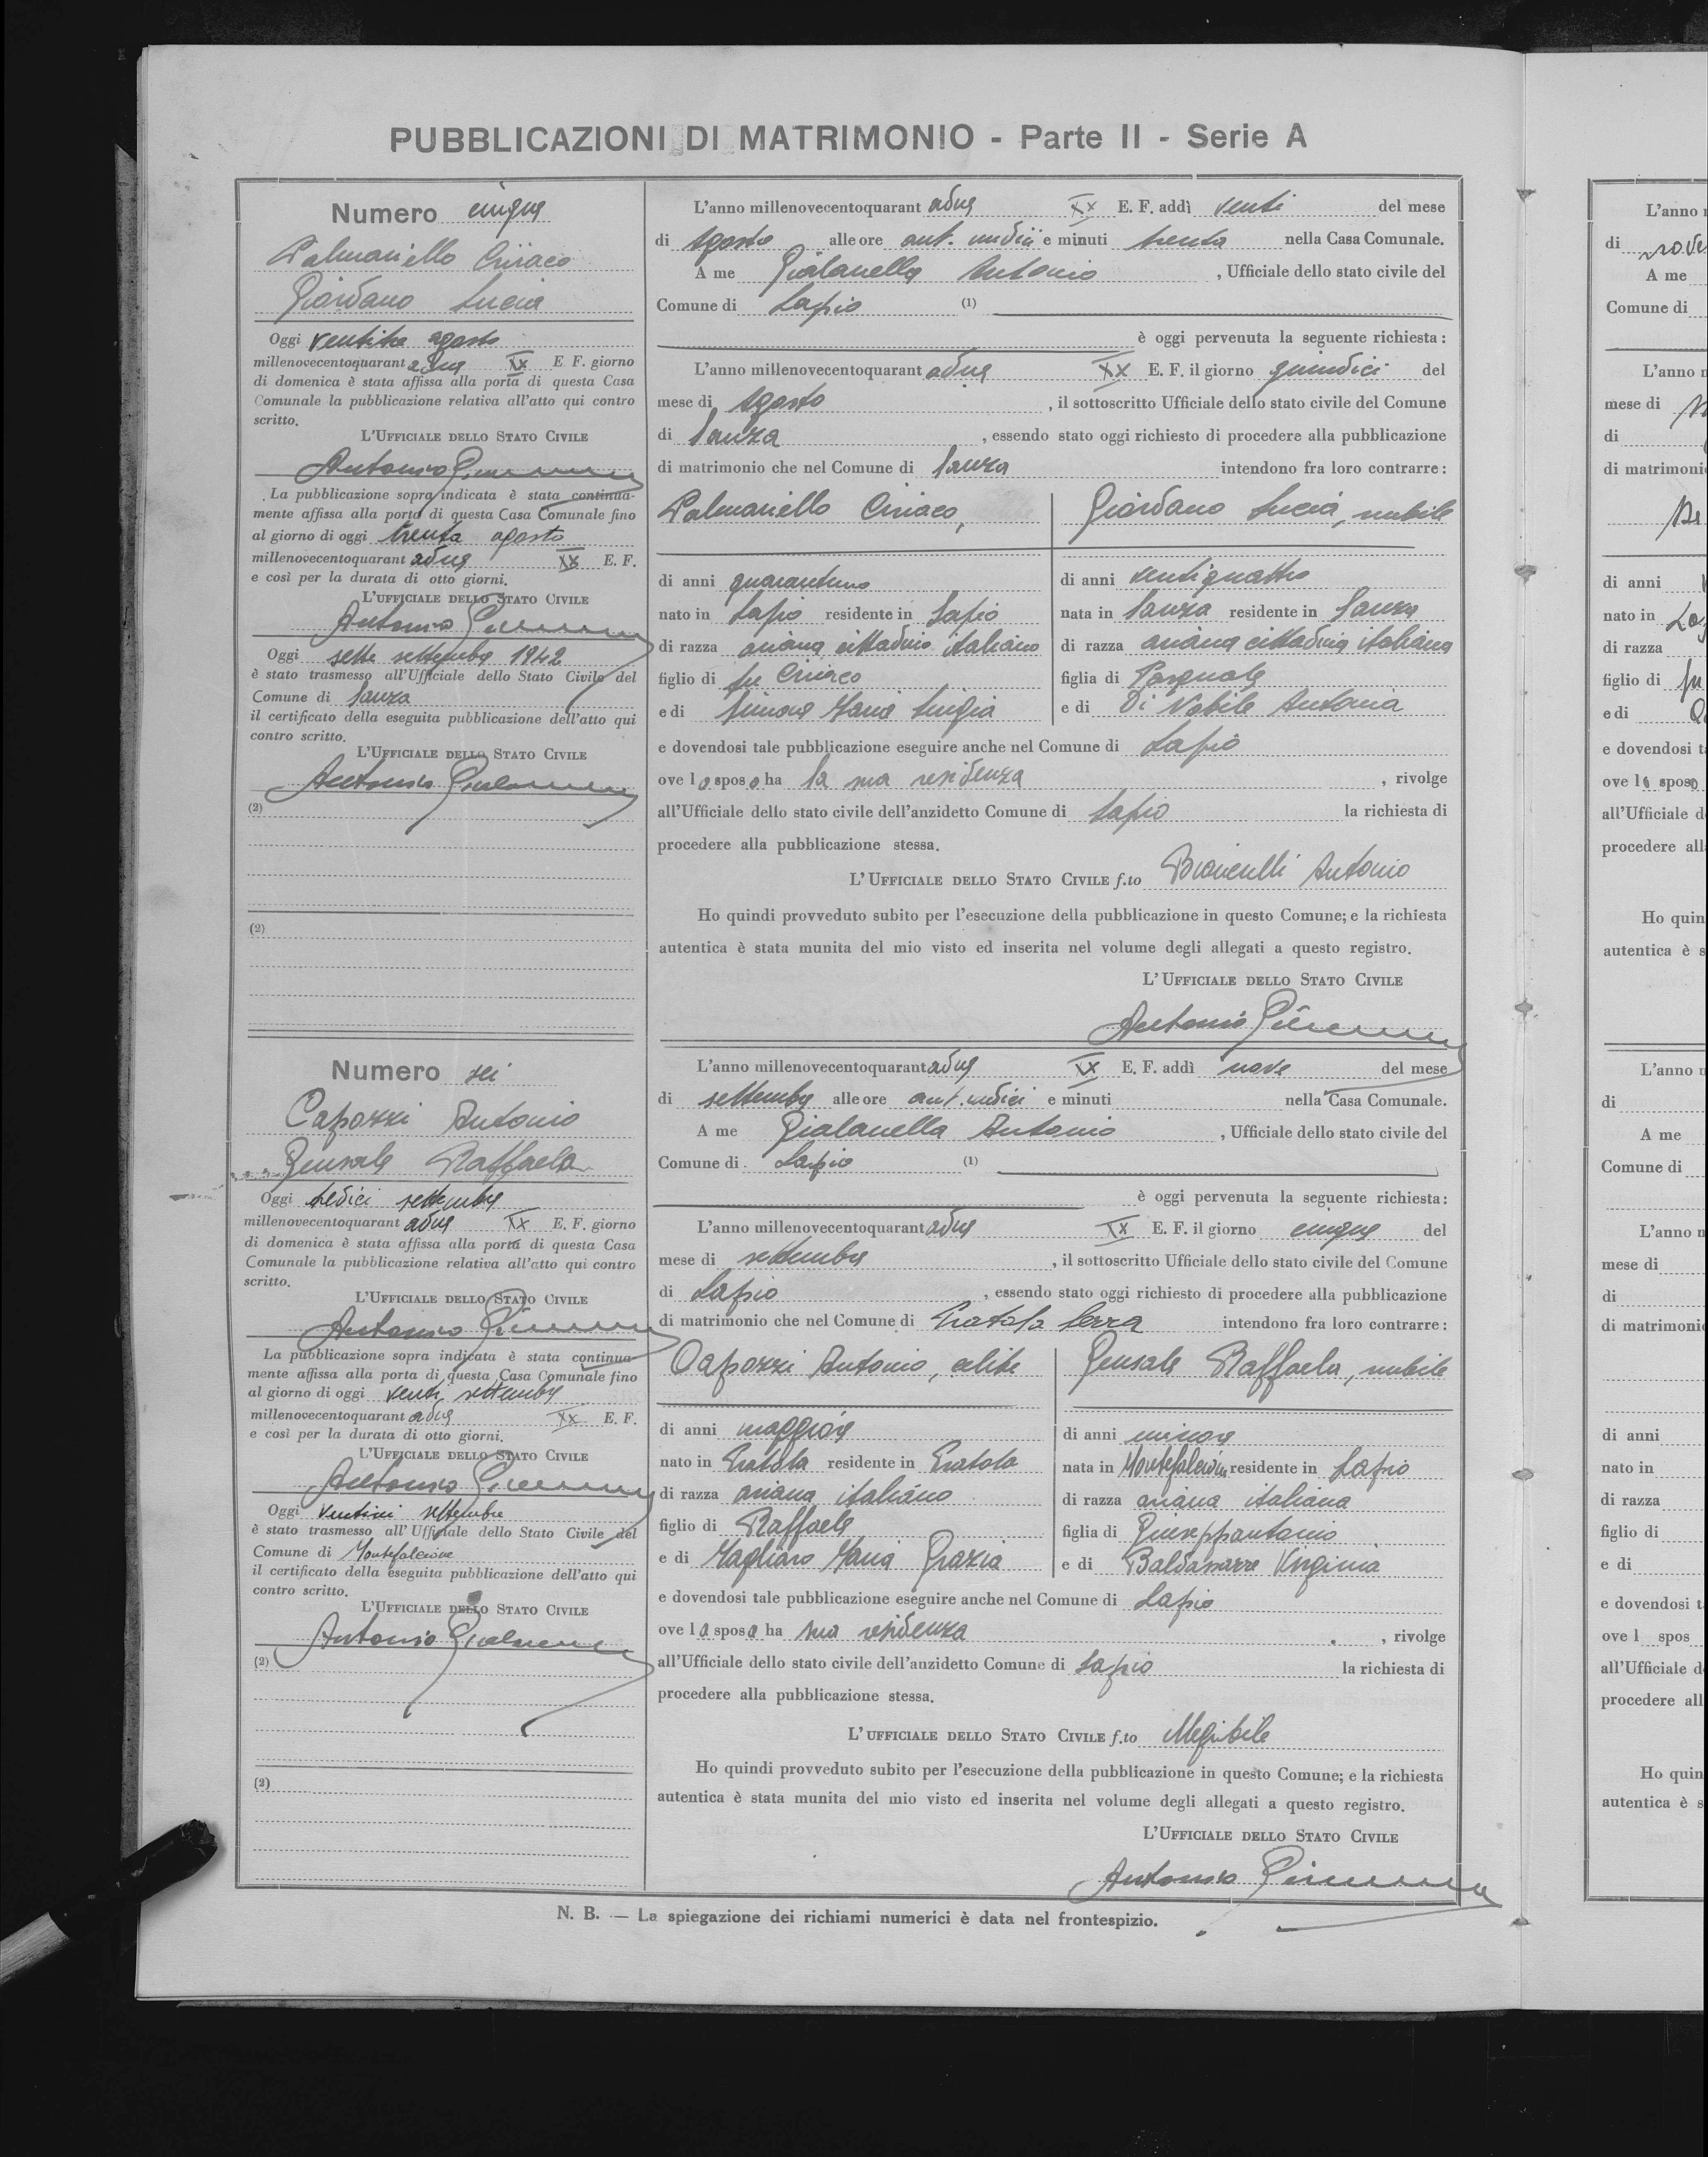 PUBBLICAZIONI DI MATRIMONIO - Parte II - Serie A
Numero cinque
Palmariello Ciriaco
Giordano Lucia
Oggi ventitre agosto
millenovecentoquarantadue XX E. F. giorno
di domenica è stata affissa alla porta di questa Casa
Comunale la pubblicazione relativa all'atto qui contro
scritto.
L'UFFICIALE DELLO STATO CIVILE
Antonio
La pubblicazione sopra indicata è stata continua-
mente affissa alla porta di questa Casa Comunale fino
al giorno di oggi trenta agosto
millenovecentoquarantadue XX E. F.
e così per la durata di otto giorni.
L'UFFICIALE DELLO STATO CIVILE
Antonio
Oggi sette settembre 1942
è stato trasmesso all'Ufficiale dello Stato Civile del
Comune di Sanza
il certificato della eseguita pubblicazione dell'atto qui
contro scritto.
L'UFFICIALE DELLO STATO CIVILE
Antonio
(2)
(2)
L'anno millenovecentoquarantadue XX E. F. addì venti del mese
di Agosto alle ore ant. undici e minuti trenta nella Casa Comunale.
A me Gialanella Antonio , Ufficiale dello stato civile del
Comune di Lapio (1)
è oggi pervenuta la seguente richiesta :
L'anno millenovecentoquarantadue XX E. F. il giorno quindici del
mese di Agosto , il sottoscritto Ufficiale dello stato civile del Comune
di Sanza , essendo stato oggi richiesto di procedere alla pubblicazione
di matrimonio che nel Comune di Sanza intendono fra loro contrarre :
Palmariello Ciriaco,
di anni quarantuno
nato in Lapio residente in Lapio
di razza ariana cittadino italiano
figlio di fu Ciriaco
e di Maria Luigia
Giordano Lucia, nubile
di anni ventiquattro
nata in Sanza residente in Sanza
di razza ariana cittadina italiana
figlia di Pasquale
e di Di Nobile Antonia
e dovendosi tale pubblicazione eseguire anche nel Comune di Lapio
ove lo sposo ha la sua residenza , rivolge
all'Ufficiale dello stato civile dell'anzidetto Comune di Lapio la richiesta di
procedere alla pubblicazione stessa.
L'UFFICIALE DELLO STATO CIVILE f.to Antonio
Ho quindi provveduto subito per l'esecuzione della pubblicazione in questo Comune; e la richiesta
autentica è stata munita del mio visto ed inserita nel volume degli allegati a questo registro.
L'UFFICIALE DELLO STATO CIVILE
Antonio
Numero sei
Capozzi Antonio
Gensale Raffaela
Oggi tredici settembre
millenovecentoquarantadue XX E. F. giorno
di domenica è stata affissa alla porta di questa Casa
Comunale la pubblicazione relativa all'atto qui contro
scritto.
L'UFFICIALE DELLO STATO CIVILE
Antonio
La pubblicazione sopra indicata è stata continua-
mente affissa alla porta di questa Casa Comunale fino
al giorno di oggi venti settembre
millenovecentoquarantadue XX E. F.
e così per la durata di otto giorni.
L'UFFICIALE DELLO STATO CIVILE
Antonio
Oggi settembre
è stato trasmesso all'Ufficiale dello Stato Civile del
Comune di Montefalcione
il certificato della eseguita pubblicazione dell'atto qui
contro scritto.
L'UFFICIALE DELLO STATO CIVILE
Antonio
(2)
(2)
L'anno millenovecentoquarantadue XX E. F. addì nove del mese
di settembre alle ore ant. undici e minuti nella Casa Comunale.
A me Gialanella Antonio , Ufficiale dello stato civile del
Comune di Lapio (1)
è oggi pervenuta la seguente richiesta :
L'anno millenovecentoquarantadue XX E. F. il giorno cinque del
mese di settembre , il sottoscritto Ufficiale dello stato civile del Comune
di Lapio , essendo stato oggi richiesto di procedere alla pubblicazione
di matrimonio che nel Comune di Pratola Serra intendono fra loro contrarre :
Capozzi Antonio, celibe
di anni maggiore
nato in Pratola residente in Pratola
di razza ariana italiano
figlio di Raffaele
e di Magliaro Maria Grazia
Gensale Raffaela, nubile
di anni minore
nata in Montefalcione residente in Lapio
di razza ariana italiana
figlia di Giuseppantonio
e di Baldassarre Virginia
e dovendosi tale pubblicazione eseguire anche nel Comune di Lapio
ove la sposa ha sua residenza , rivolge
all'Ufficiale dello stato civile dell'anzidetto Comune di Lapio la richiesta di
procedere alla pubblicazione stessa.
L'UFFICIALE DELLO STATO CIVILE f.to
Ho quindi provveduto subito per l'esecuzione della pubblicazione in questo Comune; e la richiesta
autentica è stata munita del mio visto ed inserita nel volume degli allegati a questo registro.
L'UFFICIALE DELLO STATO CIVILE
Antonio
N. B. — La spiegazione dei richiami numerici è data nel frontespizio.
L'anno
di
A me
Comune di
L'anno
mese di
di
di matrimoni
di anni
nato in
di razza
figlio di fu
e di
e dovendosi
ove lo sposo
all'Ufficiale d
procedere all
Ho quin
autentica è s
L'anno
di
A me
Comune di
L'anno
mese di
di
di matrimoni
di anni
nato in
di razza
figlio di
e di
e dovendosi t
ove l spos
all'Ufficiale d
procedere all
Ho quin
autentica è s